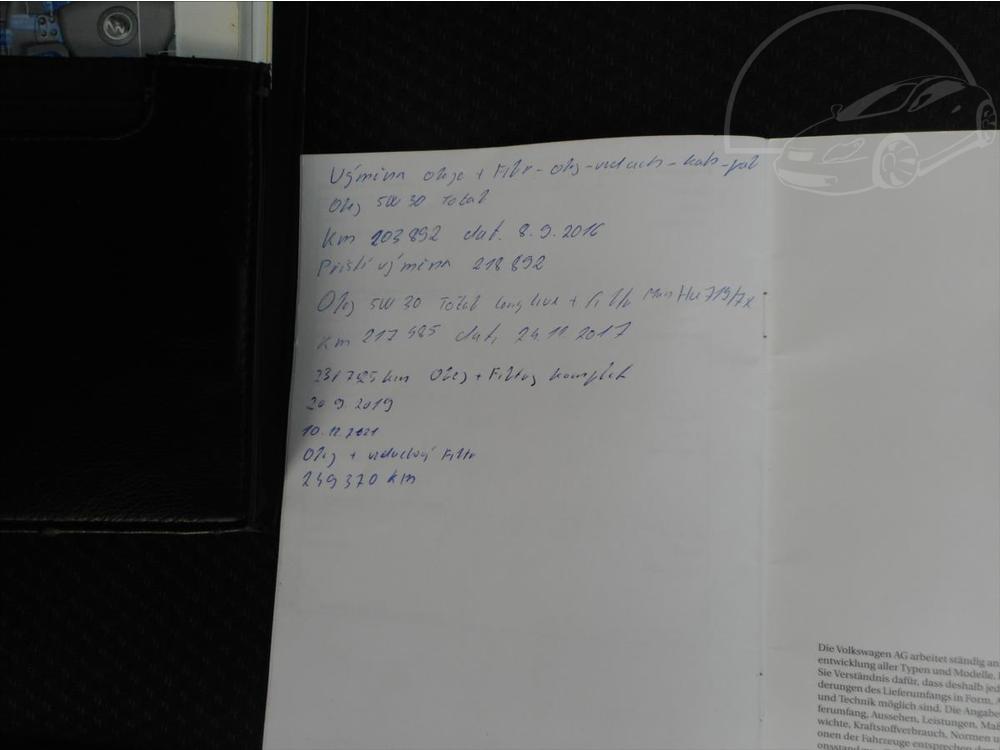 Výměna oleje + Filtr - olej - vzduch - kab - pal
Olej 5W30 Total
Km 203 892 dat. 8.9.2016
Příští výměna 218 892
Olej 5W30 Total long live + filtr Man Hu 719/7x
Km 217 485 dat. 24.11.2017
231 785 km Olej + Filtry komplet
20 9.2019
10.12.2021
Olej + vzduchový Filtr
249 370 km
Die Volkswagen AG arbeitet ständig an
entwicklung aller Typen und Modelle.
Sie Verständnis dafür, dass deshalb jed
derungen des Lieferumfangs in Form, A
und Technik möglich sind. Die Angabe
ferumfang, Aussehen, Leistungen, Maß
wichte, Kraftstoffverbrauch, Normen u
onen der Fahrzeuge entsprechen de